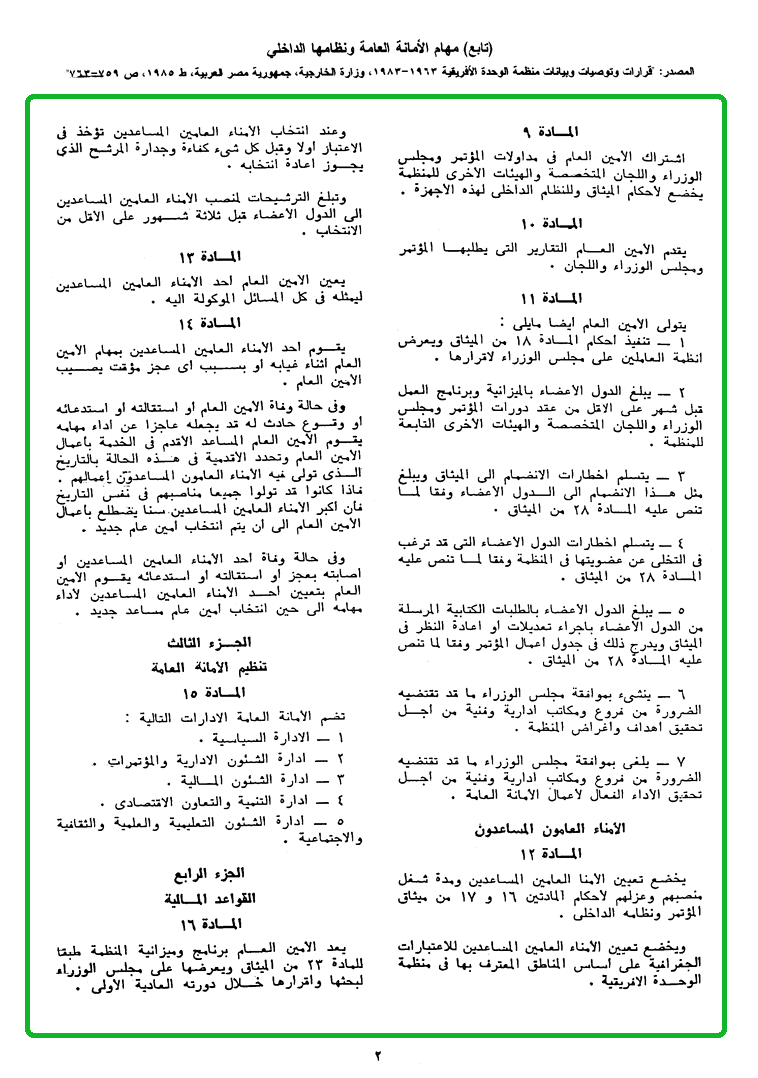 (تابع) مهام الأمانة العامة ونظامها الداخلي
المصدر: "قرارات وتوصيات وبيانات منظمة الوحدة الأفريقية ١٩٦٣-١٩٨٣، وزارة الخارجية، جمهورية مصر العربية، ط ١٩٨٥، ص ٧٥٩-٧٦٣"
المـــادة ٩
اشتراك الأمين العام فى مداولات المؤتمر ومجلس
الوزراء واللجان المتخصصة والهيئات الأخرى للمنظمة
يخضع لأحكام الميثاق وللنظام الداخلى لهذه الأجهزة .
المـــادة ١٠
يقدم الأمين العـــام التقارير التى يطلبهــا المؤتمر
ومجلس الوزراء واللجان .
المـــادة ١١
يتولى الأمين العام أيضا مايلى :
١ — تنفيذ أحكام المـــادة ١٨ من الميثاق ويعرض
أنظمة العاملين على مجلس الوزراء لاقرارها .
٢ — يبلغ الدول الأعضاء بالميزانية وبرنامج العمل
قبل شهر على الأقل من عقد دورات المؤتمر ومجلس
الوزراء واللجان المتخصصة والهيئات الأخرى التابعة
للمنظمة .
٣ — يتسلم اخطارات الانضمام الى الميثاق ويبلغ
مثل هـــذا الانضمام الى الـــدول الأعضاء وفقا لمــا
تنص عليه المـــادة ٢٨ من الميثاق .
٤ — يتسلم اخطارات الدول الأعضاء التى قد ترغب
فى التخلى عن عضويتها فى المنظمة وفقا لمــا تنص عليه
المـــادة ٢٨ من الميثاق .
٥ — يبلغ الدول الأعضاء بالطلبات الكتابية المرسلة
من الدول الأعضاء باجراء تعديلات أو اعادة النظر فى
الميثاق ويدرج ذلك فى جدول أعمال المؤتمر وفقا لما تنص
عليه المـــادة ٢٨ من الميثاق .
٦ — ينشىء بموافقة مجلس الوزراء ما قد تقتضيه
الضرورة من فروع ومكاتب ادارية وفنية من أجـــل
تحقيق أهداف وأغراض المنظمة .
٧ — يلغى بموافقة مجلس الوزراء ما قد تقتضيه
الضرورة من فروع ومكاتب ادارية وفنية من أجـــل
تحقيق الأداء الفعال لأعمال الأمانة العامة .
الأمناء العامون المساعدون
المـــادة ١٢
يخضع تعيين الأمنا العامين المساعدين ومدة شـغل
منصبهم وعزلهم لأحكام المادتين ١٦ و ١٧ من ميثاق
المؤتمر ونظامه الداخلى .
ويخضع تعيين الأمناء العامين المساعدين للاعتبارات
الجغرافية على أساس المناطق المعترف بها فى منظمة
الوحـــدة الافريقية .
وعند انتخاب الأمناء العامين المساعدين تؤخذ فى
الاعتبار أولا وقبل كل شىء كفاءة وجدارة المرشح الذى
يجـــوز اعادة انتخابه .
وتبلغ الترشيحات لمنصب الأمناء العامين المساعدين
الى الدول الأعضاء قبل ثلاثة شـــهور على الأقل من
الانتخاب .
المـــادة ١٣
يعين الأمين العام أحد الأمناء العامين المساعدين
ليمثله فى كل المسائل الموكولة اليه .
المـــادة ١٤
يقـــوم أحد الأمناء العامين المساعدين بمهام الأمين
العام أثناء غيابه أو بســـبب أى عجز مؤقت يصـيب
الأمين العام .
وفى حالة وفاة الأمين العام أو استقالته أو استدعائه
أو وقـــوع حادث له قد يجعله عاجزا عن أداء مهامه
يقـــوم الأمين العام المساعد الأقدم فى الخدمة بأعمال
الأمين العام وتحدد الأقدمية فى هـــذه الحالة بالتاريخ
الـــذى تولى فيه الأمناء العامون المساعدون أعمالهم .
فاذا كانوا قد تولوا جميعا مناصبهم فى نفس التاريخ
فان أكبر الأمناء العامين المساعدين سنا يضطلع بأعمال
الأمين العام الى أن يتم انتخاب أمين عام جديد .
وفى حالة وفاة أحد الأمناء العامين المساعدين أو
اصابته بعجز أو استقالته أو استدعائه يقـــوم الأمين
العام بتعيين أحـــد الأمناء العامين المساعدين لأداء
مهامه الى حين انتخاب أمين عام مساعد جديد .
الجـزء الثالث
تنظيم الأمانة العامة
المـــادة ١٥
تضم الأمانة العامة الادارات التالية :
١ — الادارة السياسية .
٢ — ادارة الشئون الادارية والمؤتمرات .
٣ — ادارة الشئون المـــالية .
٤ — ادارة التنمية والتعاون الاقتصادى .
٥ — ادارة الشئون التعليمية والعلمية والثقافية
والاجتماعية .
الجزء الرابع
القواعد المـــالية
المـــادة ١٦
يعد الأمين العـــام برنامج وميزانية المنظمة طبقا
للمادة ٢٣ من الميثاق ويعرضها على مجلس الوزراء
لبحثها واقرارها خـــلال دورته العادية الأولى .
٢